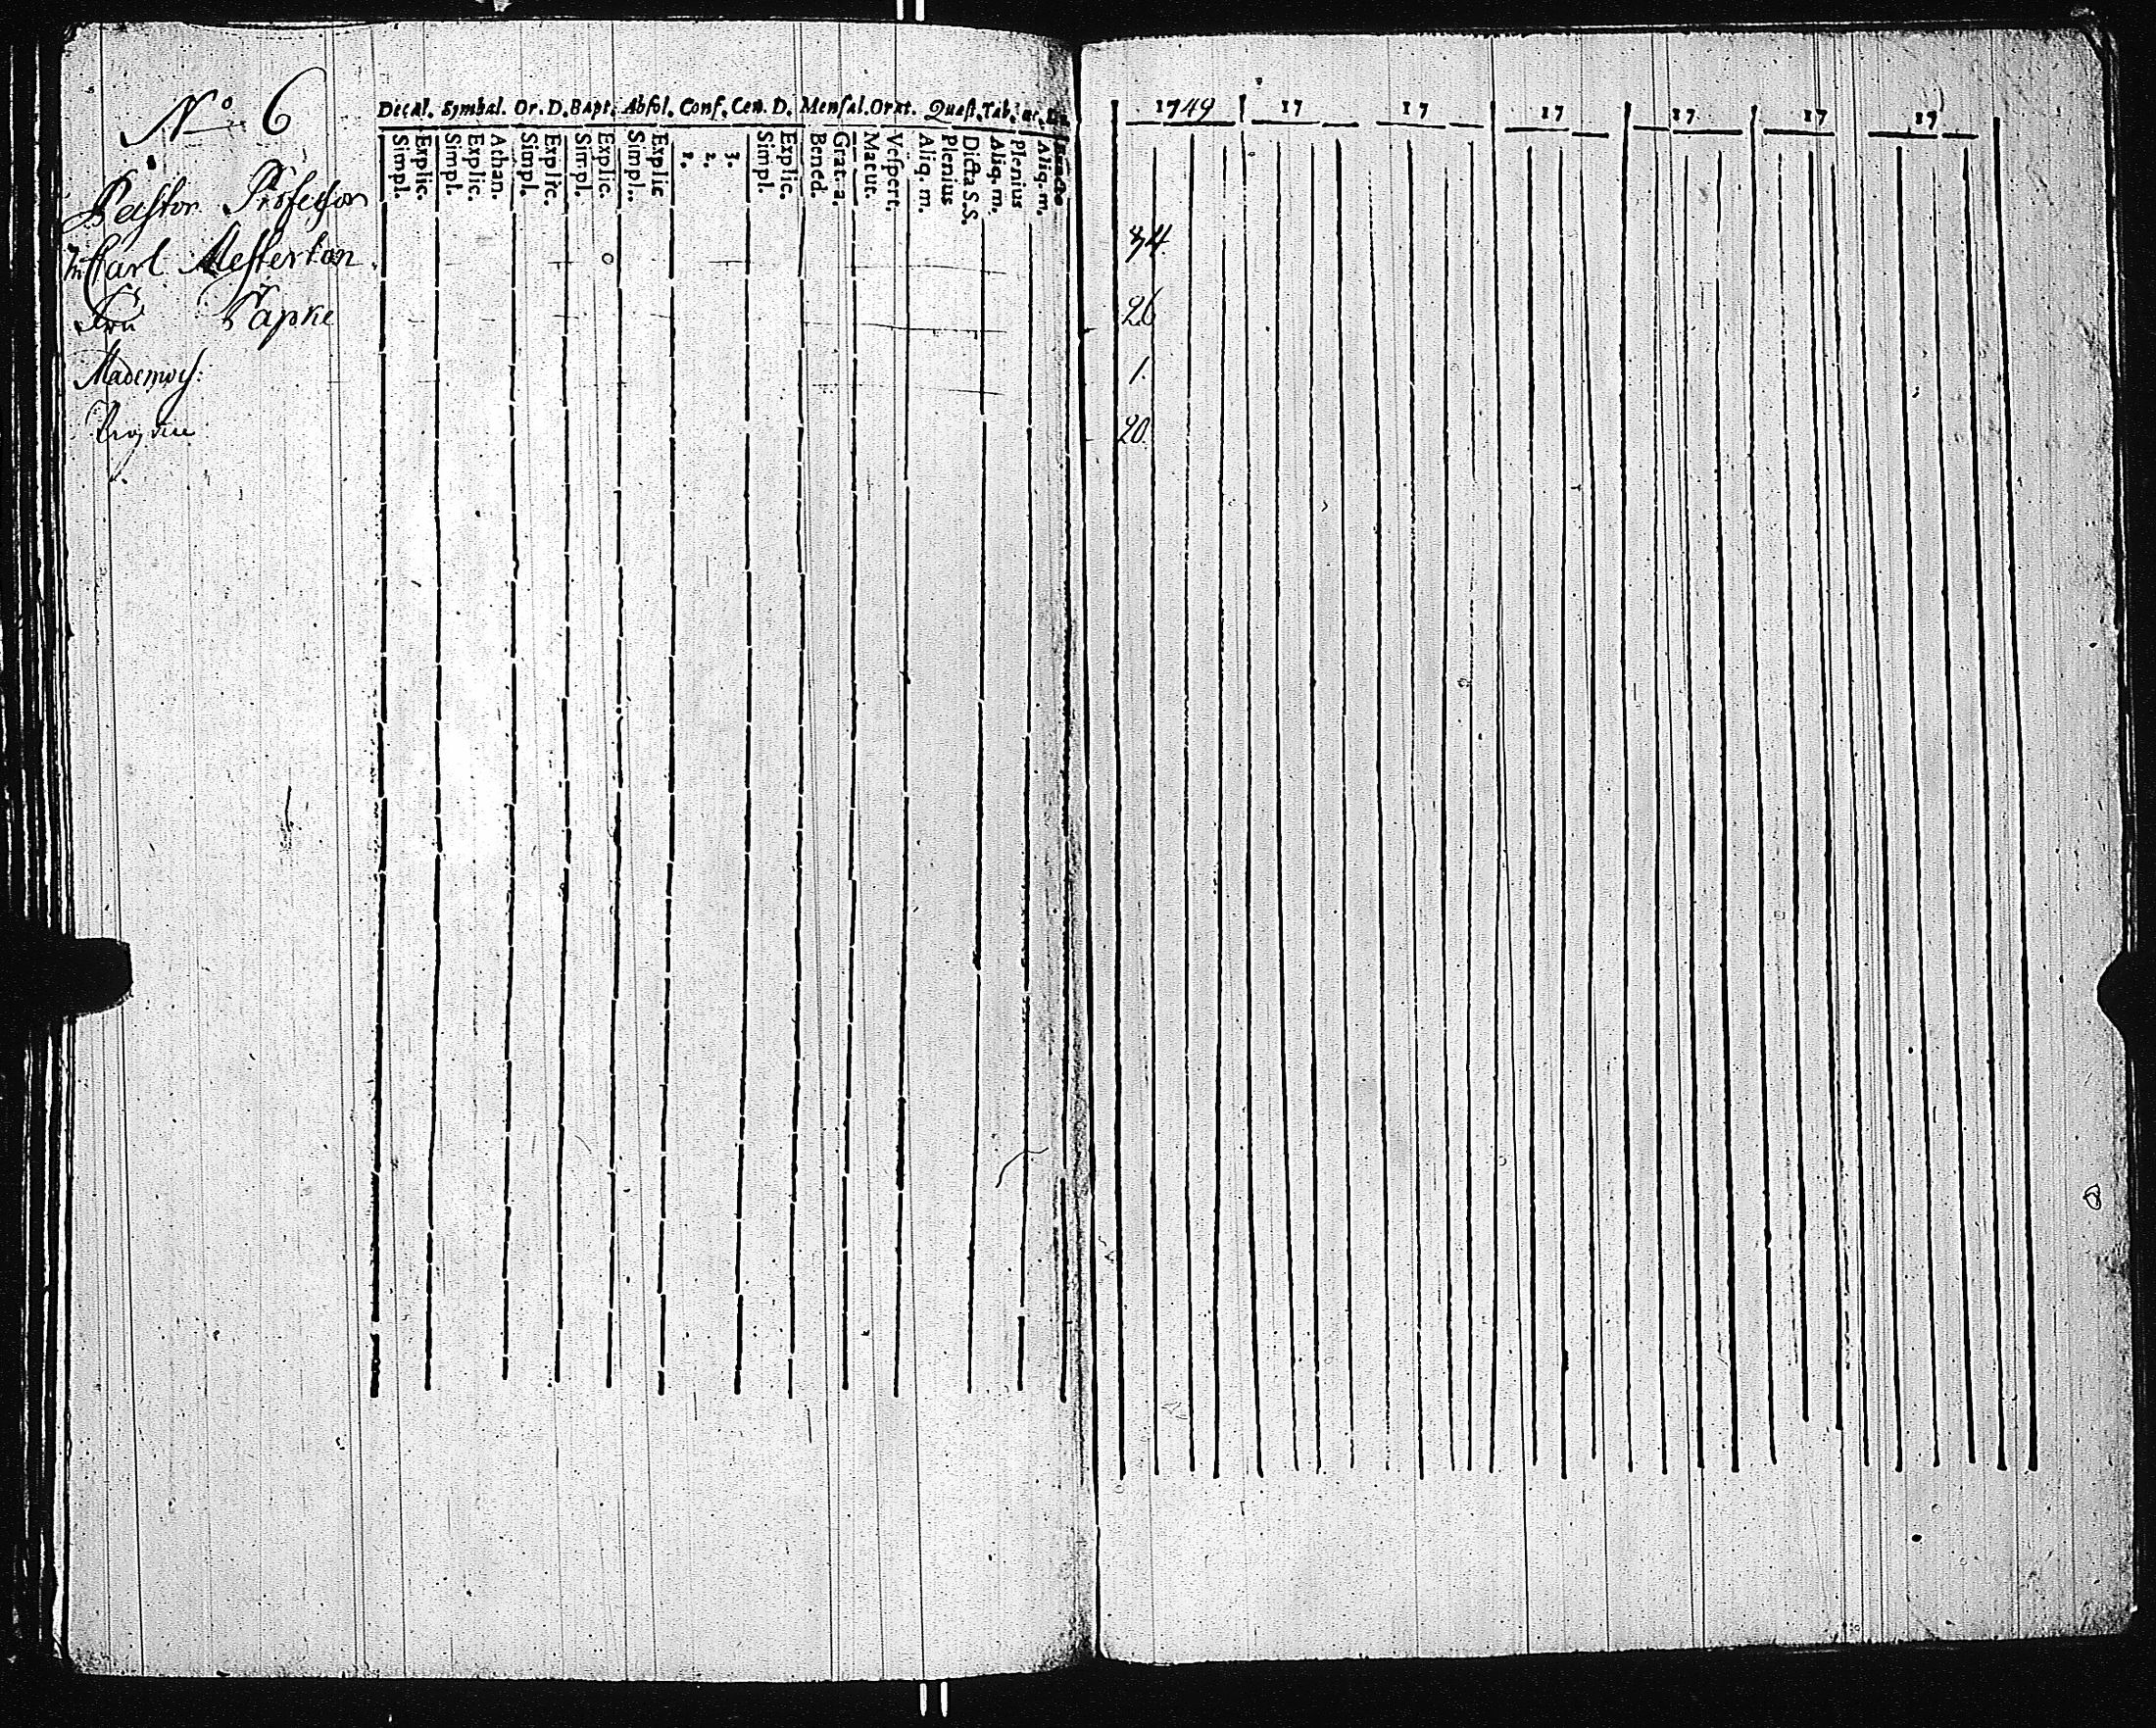 N:o 6
Decal. Symbol. Or. D. Bapt. Absol. Conf. Cœn. D. Mensal. Orat. Quæst. Tab.
Simpl. Explic. Simpl. Explic. Athan. Simpl. Explic. Simpl. Explic. Simpl. Explic 1. 2. 3. Simpl. Explic. Bened. Grat. a. Matut. Vespert. Aliq. m. Plenius Dicta S.S. Aliq. m. Plenius Aliq. m.
Pastor Professor
Carl Mesterton
Fru Papke
Mademois:
1749 17 17 17 17 17 17
34.
26
1.
20.